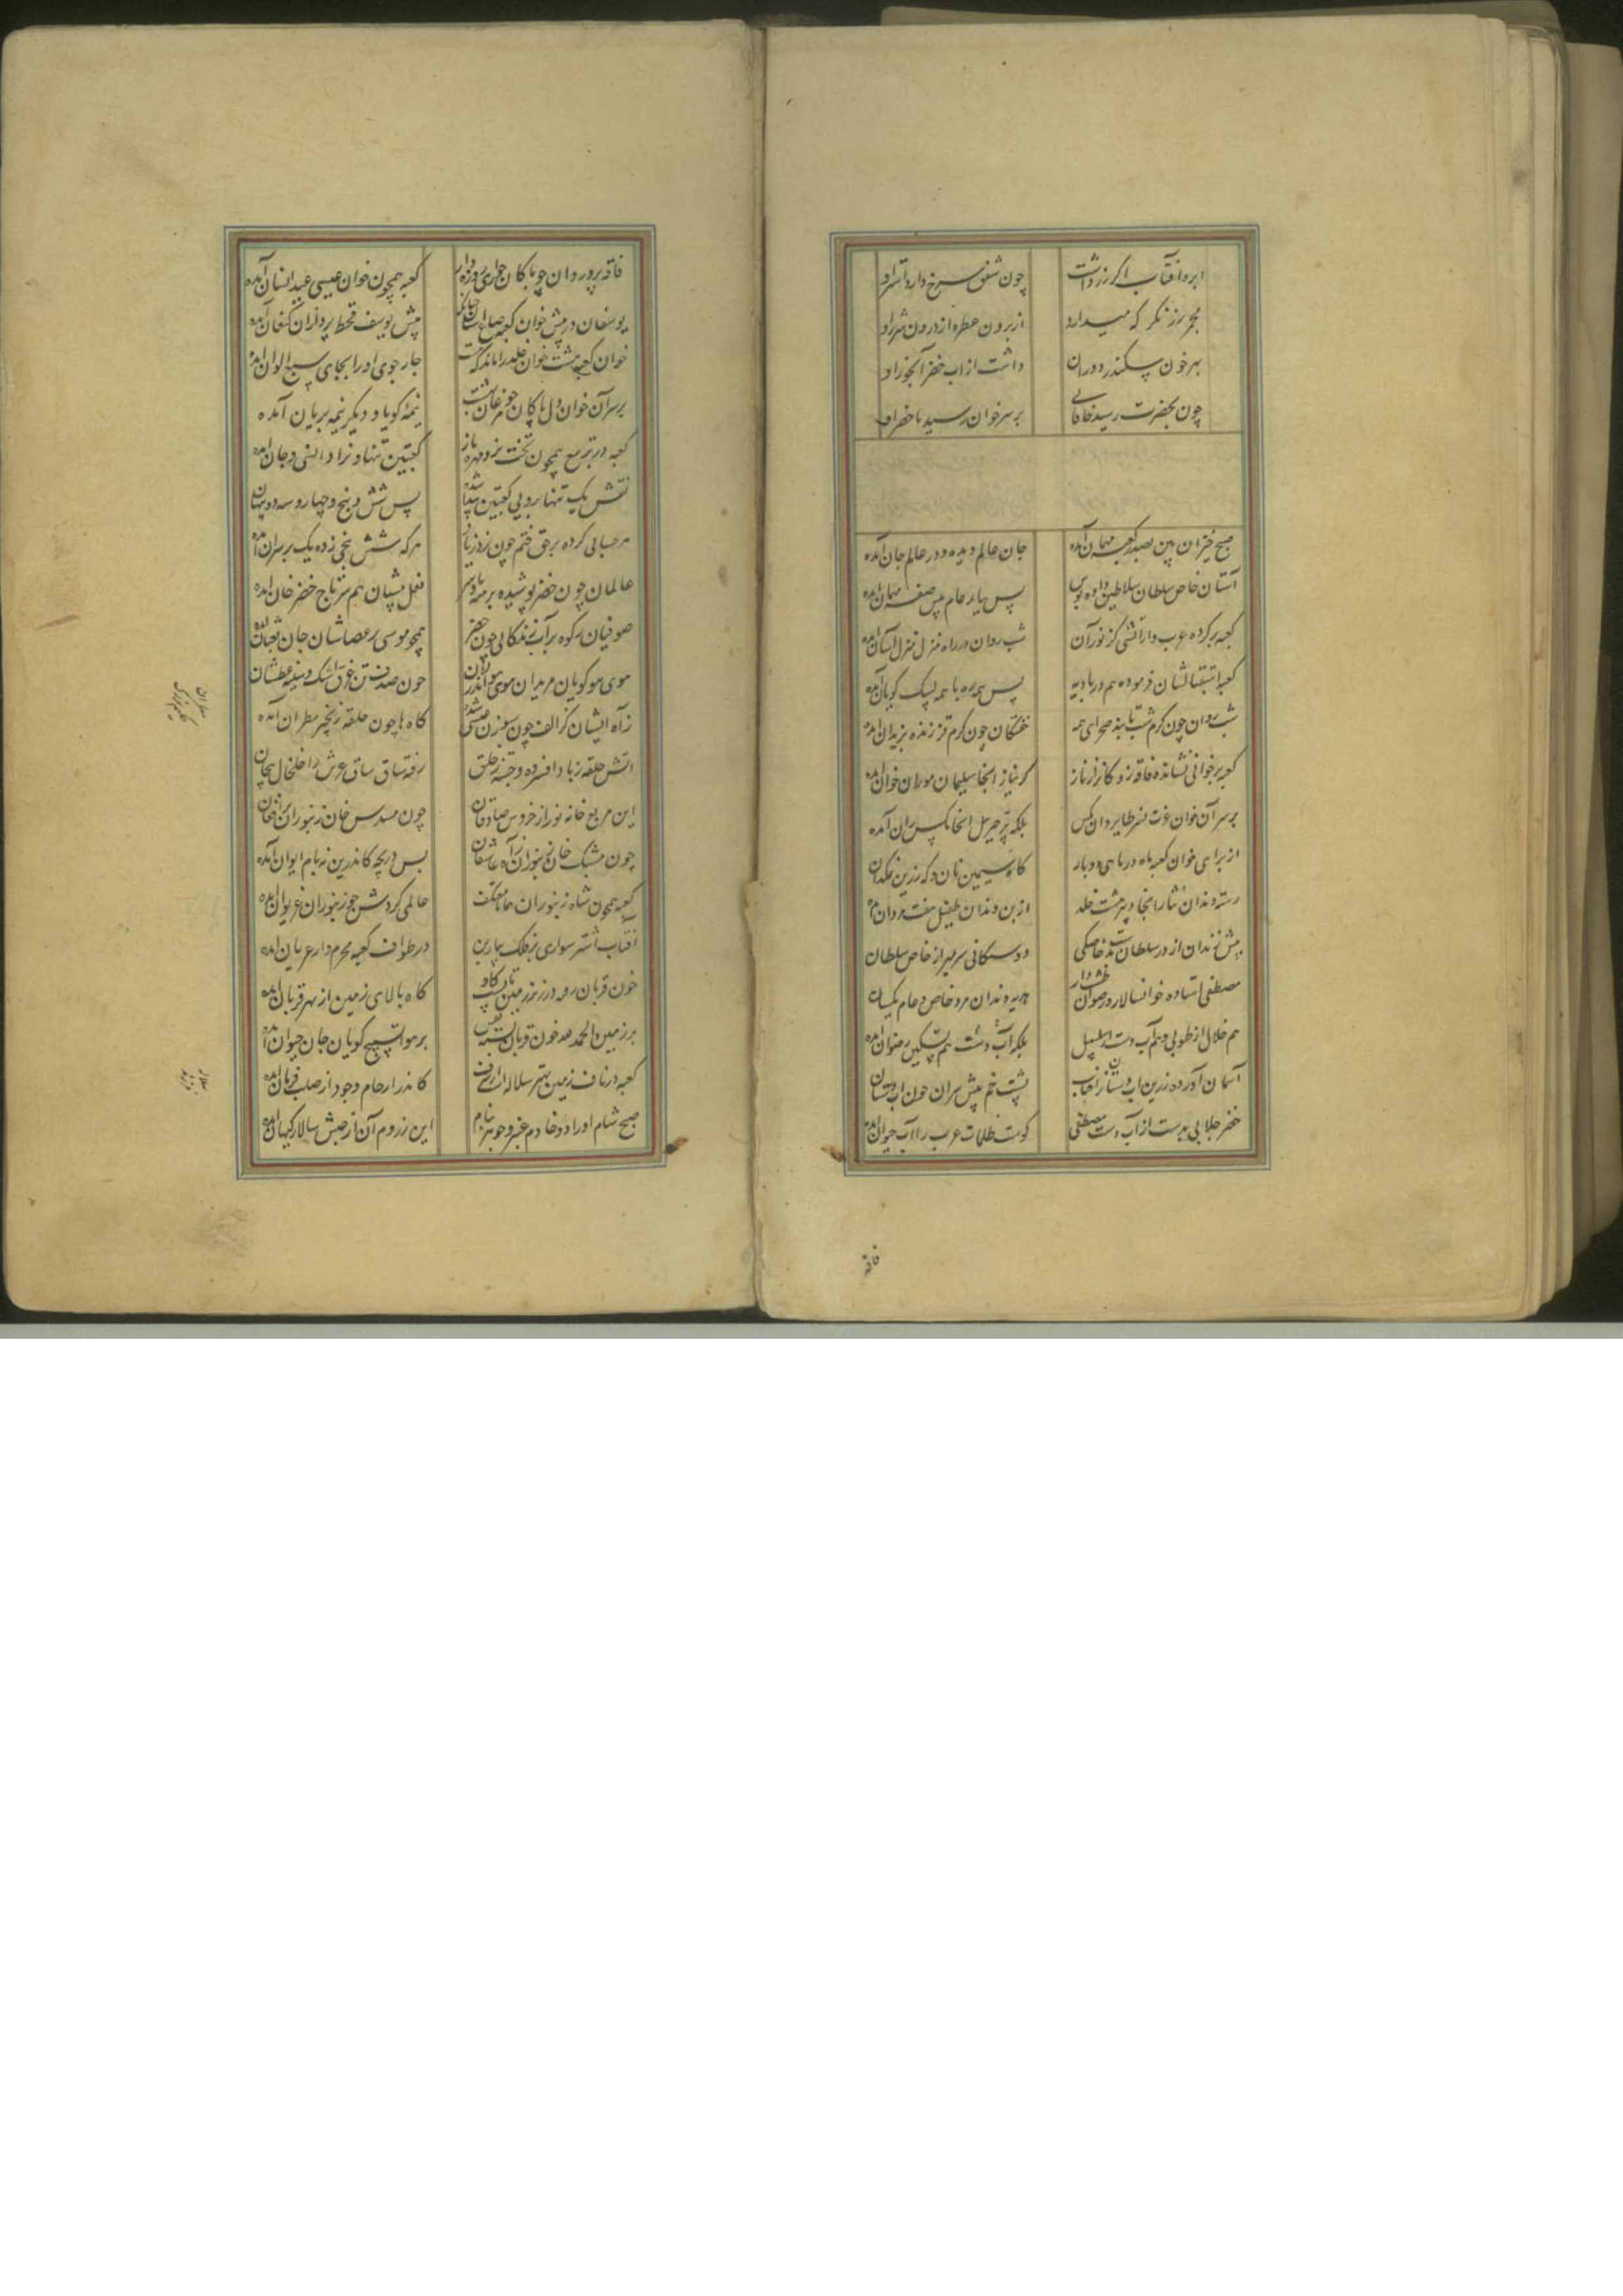 ابره آفتاب اگر زرداشت چون شفق سرخ دارد آستراو
مجمر زر نگر که میدارد از برون عطره از درون شرر او
بهر خون سکندر دوران داشت از آب خضر آبخور او
چون بحضرت رسید خاقانی بر سر خوان رسید ماحضر او
صبح خیزان بین بصدر کعبه مهمان آمده جان عالم دیده و در عالم جان آمده
آستان خاص سلطان سلاطین داده بوس پس ببار عام پیش صفه مهمان آمده
کعبه بر کرده عرب وار آتشی کز نور آن شب روان در راه منزل منزل آسان آمده
کعبه استقبالشان فرموده هم در بادیه پس همه ره با همه لبیک گویان آمده
شب روان چون کرم شب تابند صحرای همه خفتگان چون کرم قز زنده بزندان آمده
کعبه بر خوانی نشانده فاقه زدگان را بناز کز نیاز آنجا سلیمان مور آن خوان آمده
بر سر آن خوان عزت نسر طایر دان مگس بلکه پر جبریل آنجا مگس ران آمده
از برای خوان کعبه ماه در ماهی دو بار گاه سیمین نان و گه زرین نمکدان
رسته دندان نیاز آنجا و پیر هشت خلد از بن دندان طفیل هفت مردان آمده
پیش دندان از در سلطان بدست خاصگی دوستگانی سر بمهر از خاص سلطان
مصطفی استاده خوانسالار و رضوان طشت دار هدیه دندان مزد خاص و عام یکسان
هم خلال از طوبی و هم آب دست از سلسبیل بلکه آب دست هم تسکین رضوان آمده
آسمان آورده زرین آب دستان ز آفتاب پشت خم پیش سران چون آب دستان
خضر جلابی بدست از آب دست مصطفی کوست ظلمات عرب را آب حیوان آمده
فاقه
فاقه پرور دان چو پاکان حواری روزه دار کعبه همچون خوان عیسی عید ایشان آمده
یوسفان در پیش خوان کعبه صاع آسا چنانک پیش یوسف قحط پردازان کنعان آمده
خوان کعبه هشت خوان خلد را ماند کجاست چار جوی او را بجای سبع الوان آمده
بر سر آن خوان دل پاکان چو مرغان بهشت نیمه گویا و دیگر نیمه بریان آمده
کعبه در تربیع همچون تخت نرد مهره باز کعبتین تنها و نراد انسی و جان آمده
نقش یک تنها بروی کعبتین پیدا شده پس شش و پنج و چهار و سه دو پنهان
هر حسابی کرده بر حق ختم چون نرد زیاد هر که شش پنجی زده یک بر سر آن آمده
عالمان چون خضر پوشیده برهنه پا و سر نعل پیشان هم سر تاج خضر خان آمده
صوفیان رکوه پر آب زندگانی چون خضر همچو موسی بر عصاشان جان ثعبان آمده
موی مو گویان مریدان موی موی اندر زبان چون صدف تن غرق اشک و سینه عطشان
زآه ایشان گر الف چون سوزن عیسی شده گاه ها چون حلقه زنجیر مطران آمده
آتشین حلقه ز باد افسرده و جسته ز حلق رفته ساق ساق عرش را خلخال پیچان
این مربع خانه نور از خروش صادقان چون مسدس خان زنبوران پر افغان
چون مشبک خان زنبوران ز آه عاشقان بس دریچه کاندرین نه بام ایوان آمده
کعبه همچون شاه زنبوران همانجا معتکف عالمی گردش چو زنبوران غریوان آمده
آفتاب اشتر سواری بر فلک بیمار تن در طواف کعبه محرم وار عریان آمده
خون قربان رفته در زیر زمین تا پشت گاو گاه بالای زمین از بهر قربان آمده
بر زمین الحمدلله خون قربان بسته نقش بر هوا تسبیح گویان جان حیوان آمده
کعبه در ناف زمین بهتر سلاله از شرف کاندر ارحام وجود از صلب فرمان آمده
صبح شام او را دو خادم عنبر و جوهر بنام این ز روم آن از حبش سالار کیهان آمده